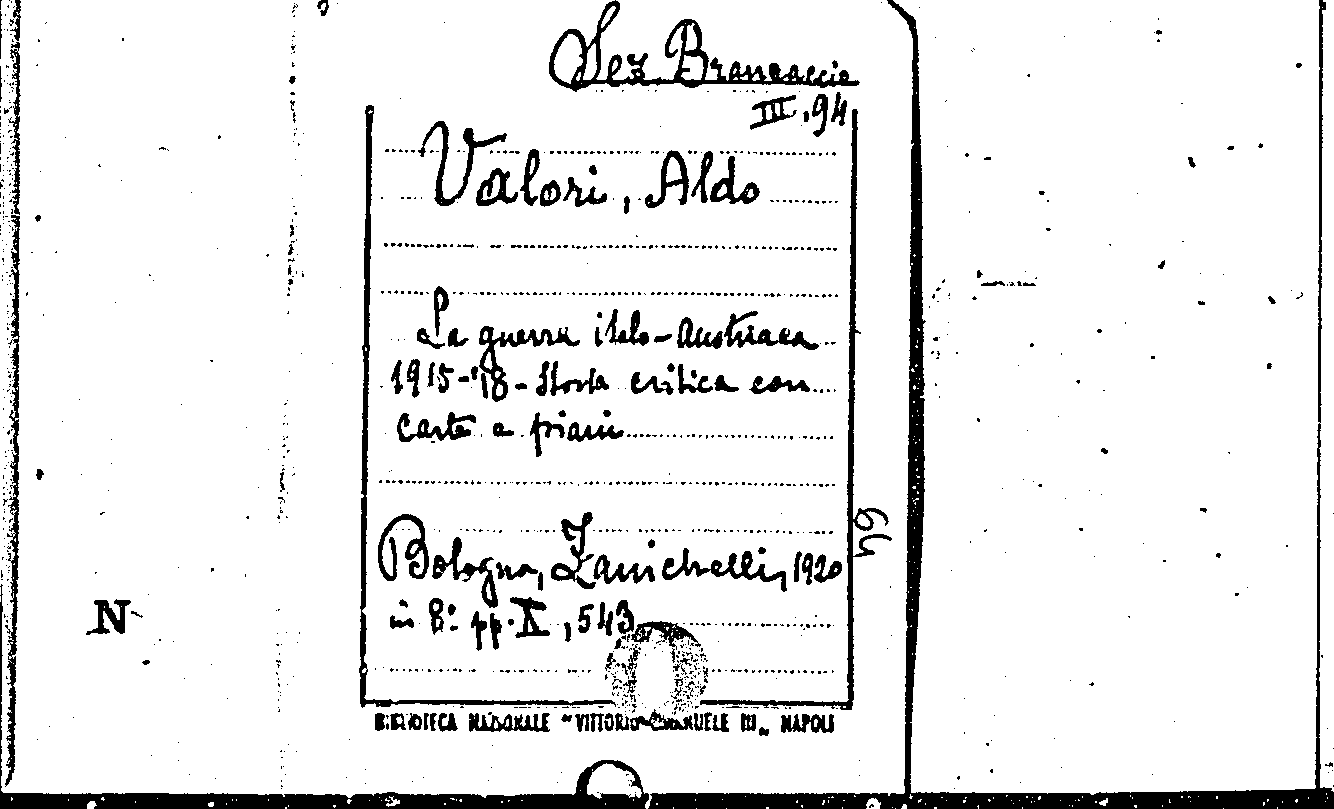 Sez Brancaccio
III, 94
Valori, Aldo
La guerra italo-austriaca
1915-'18 - Storia critica con
carte e piani
Bologna, Zanichelli, 1920
in 8° pp. X, 543
64
N
BIBLIOTECA NAZIONALE "VITTORIO EMANUELE III„ NAPOLI